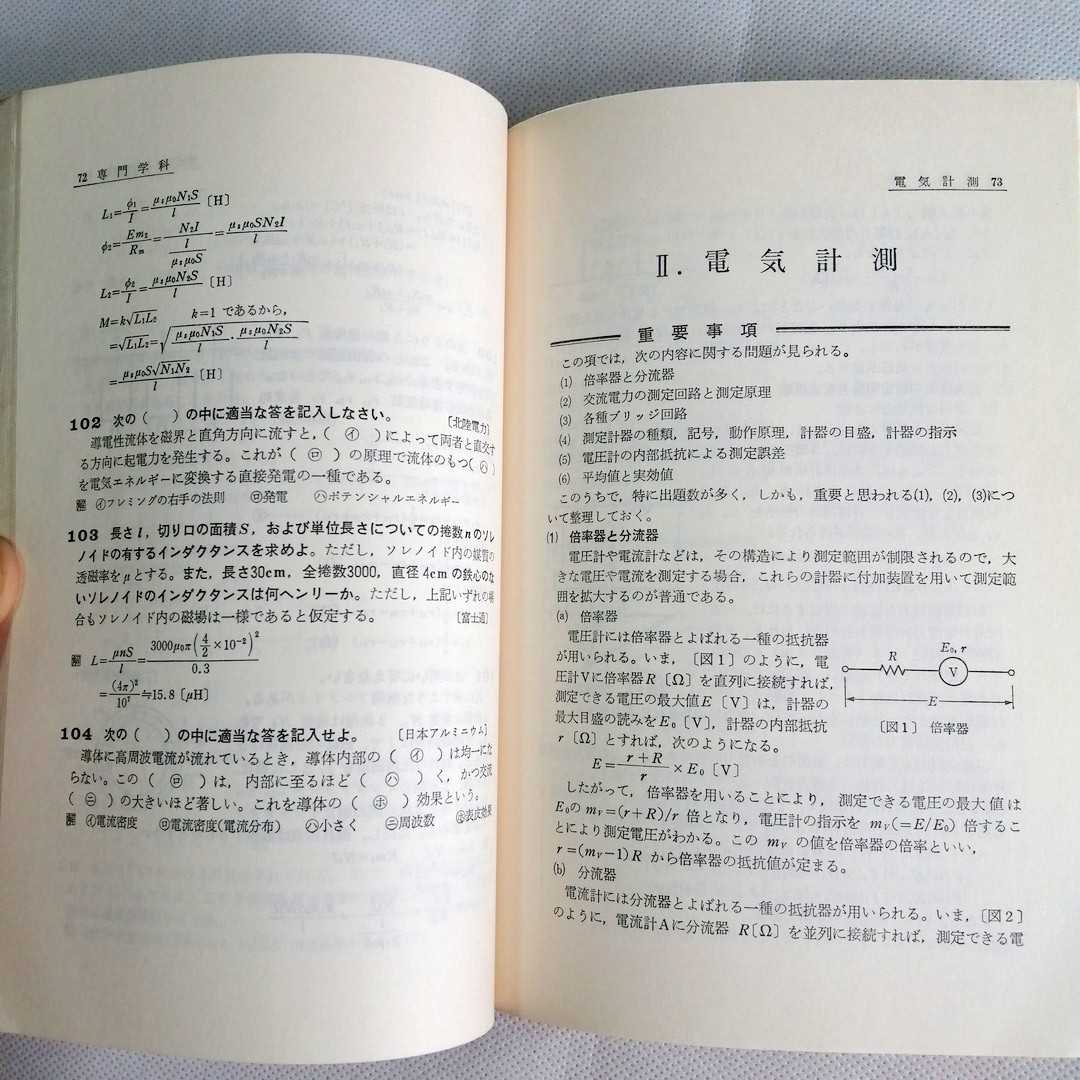 72 専門学科
L₁=φ₁/I=μₛμ₀N₁S/l 〔H〕
φ₂=Em₂/Rₘ=N₂I/(l/μₛμ₀S)=μₛμ₀SN₂I/l
L₂=φ₂/I=μₛμ₀N₂S/l 〔H〕
M=k√L₁L₂ k=1 であるから,
=√L₁L₂=√(μₛμ₀N₁S/l・μₛμ₀N₂S/l)
=μₛμ₀S√N₁N₂/l 〔H〕
102 次の( )の中に適当な答を記入しなさい。 〔北陸電力〕
導電性流体を磁界と直角方向に流すと,( ㋑ )によって両者と直交す
る方向に起電力を発生する。これが( ㋺ )の原理で流体のもつ( ㋩ )
を電気エネルギーに変換する直接発電の一種である。
答 ㋑フレミングの右手の法則 ㋺発電 ㋩ポテンシャルエネルギー
103 長さl, 切り口の面積S, および単位長さについての捲数nのソレ
ノイドの有するインダクタンスを求めよ。ただし, ソレノイド内の媒質の
透磁率をμとする。また, 長さ30cm, 全捲数3000, 直径4cmの鉄心のな
いソレノイドのインダクタンスは何ヘンリーか。ただし, 上記いずれの場
合もソレノイド内の磁場は一様であると仮定する。 〔富士通〕
答 L=μnS/l=3000μ₀π(4/2×10⁻²)²/0.3
=(4π)²/10⁷≒15.8〔μH〕
104 次の( )の中に適当な答を記入せよ。 〔日本アルミニウム〕
導体に高周波電流が流れているとき, 導体内部の( ㋑ )は均一にな
らない。この( ㋺ )は, 内部に至るほど( ㋩ )く, かつ交流
( ㋥ )の大きいほど著しい。これを導体の( ㋭ )効果という。
答 ㋑電流密度 ㋺電流密度(電流分布) ㋩小さく ㋥周波数 ㋭表皮効果
電気計測 73
Ⅱ. 電気計測
重要事項
この項では, 次の内容に関する問題が見られる。
(1) 倍率器と分流器
(2) 交流電力の測定回路と測定原理
(3) 各種ブリッジ回路
(4) 測定計器の種類, 記号, 動作原理, 計器の目盛, 計器の指示
(5) 電圧計の内部抵抗による測定誤差
(6) 平均値と実効値
このうちで, 特に出題数が多く, しかも, 重要と思われる(1), (2), (3)につ
いて整理しておく。
(1) 倍率器と分流器
電圧計や電流計などは, その構造により測定範囲が制限されるので, 大
きな電圧や電流を測定する場合, これらの計器に付加装置を用いて測定範
囲を拡大するのが普通である。
(a) 倍率器
電圧計には倍率器とよばれる一種の抵抗器
が用いられる。いま, 〔図1〕のように, 電
圧計Vに倍率器R〔Ω〕を直列に接続すれば,
測定できる電圧の最大値E〔V〕は, 計器の
最大目盛の読みをE₀〔V〕, 計器の内部抵抗
r〔Ω〕とすれば, 次のようになる。
R
E₀, r
V
E
〔図1〕 倍率器
E=(r+R)/r×E₀〔V〕
したがって, 倍率器を用いることにより, 測定できる電圧の最大値は
E₀のmᵥ=(r+R)/r倍となり, 電圧計の指示をmᵥ(=E/E₀)倍するこ
とにより測定電圧がわかる。このmᵥの値を倍率器の倍率といい,
r=(mᵥ−1)Rから倍率器の抵抗値が定まる。
(b) 分流器
電流計には分流器とよばれる一種の抵抗器が用いられる。いま, 〔図2〕
のように, 電流計Aに分流器R〔Ω〕を並列に接続すれば, 測定できる電